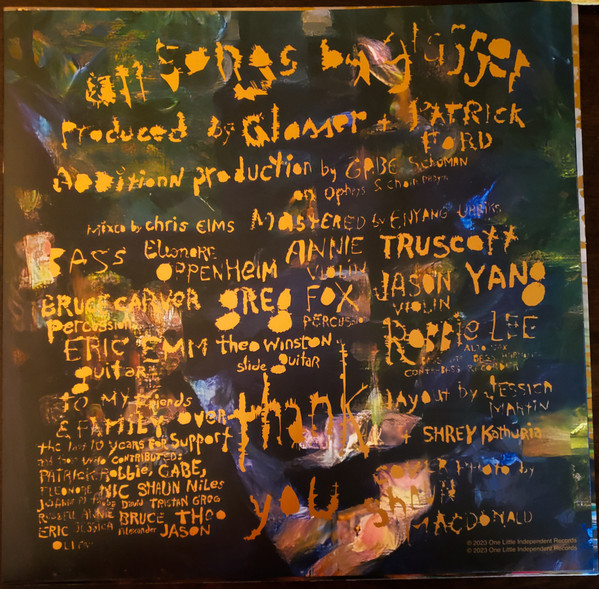 all songs by glasser
Produced by Glasser + PATRICK FORD
Additionn production by GABE Schuman
on Ophrys & Choir Prayer
mixed by chris Elms MASTERED by ENYANG Urbiks
BASS Eleonore OPPENHEIM
ANNIE TRUSCOTT VIOLIN
JASON YANG VIOLIN
BRUCE CARVER percussion
greg FOX PERCUSSION
Robbie LEE ALTO SAX
CONTRABASS RECORDER
ERIC EMM guitar
theo Winston slide guitar
TO MY friends
& FAMILY over
the last 10 years FOR support
and those who CONTRIBUTED:
PATRICK, Robbie, GABE,
ELEONORE, NIC SHAUN Niles
DAVID TRISTAN GREG
RUSSELL ANNIE BRUCE Theo
ERIC JESSICA Alexander JASON
thank you
layout by JESSICA Martin
+ SHREY Kathuria
COVER PHOTO by
Shaun
MACDONALD
© 2023 One Little Independent Records
℗ 2023 One Little Independent Records